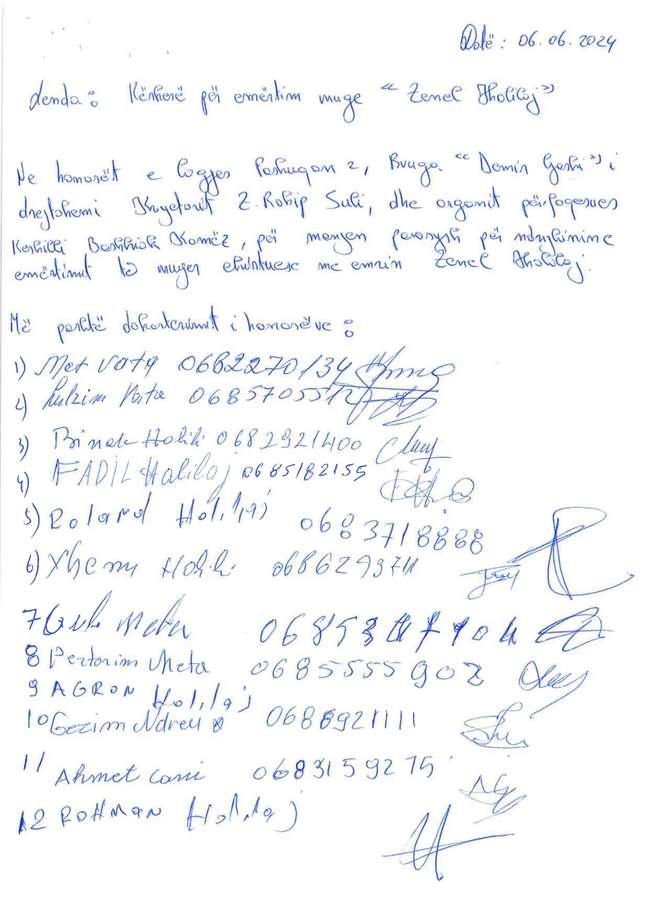 Datë : 06.06.2024
Lenda : Kërkesë për emërtim rruge “Zenel Haliloj”
Ne banorët e lagjes Pashuqan 2, Rruga “Demir Gashi” i
drejtohemi Kryetarit Z. Rakip Suli, dhe organit përfaqesues
Keshilli Bashkiak Kamëz, për marrjen parasysh për ndryshimine
emërtimit të rruges ekzistuese me emrin Zenel Haliloj.
Më poshtë dokumentimit i banorëve :
1) Met Vata 0682270134
2) Lulzim Vata 0685705512
3) Binak Halili 0682921400
4) FADIL Halilaj 0685182155
5) Roland Halilaj 0683718888
6) Xhemi Halili 068629371
7 Meta
8 Përparim Meta 0685555902
9 AGRON Halilaj
10 Gezim Ndreu 0686921111
11 Ahmet Cani 0683159275
12 ROHMAN Halilaj